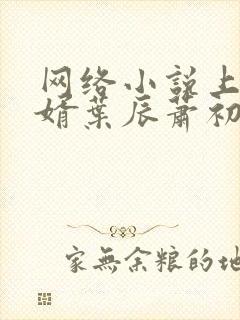 网络小说上
婿葉辰蕭初
家無余粮的地